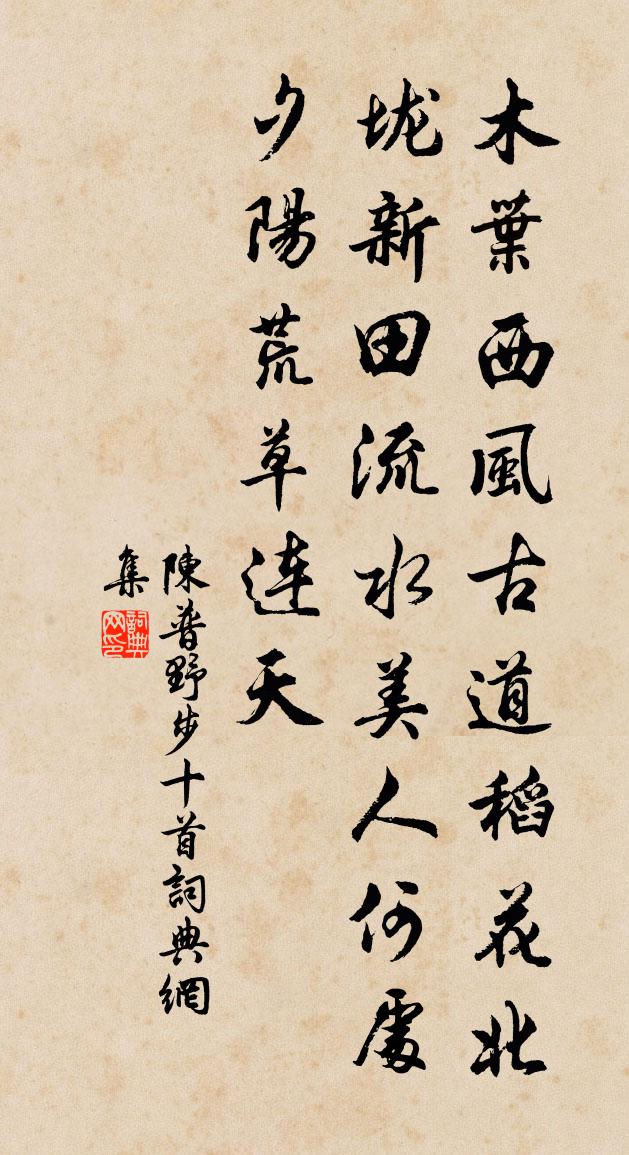 木葉西風古道稻花北
垅新田流水美人何處
夕陽荒草連天
陳普野步十首詞典網
集
詞典网印